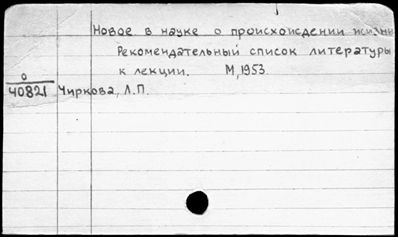 Новое в науке о происхождении жизни
Рекомендательный список литературы
к лекции. М, 1953.
0
40821 Чиркова, Л.П.